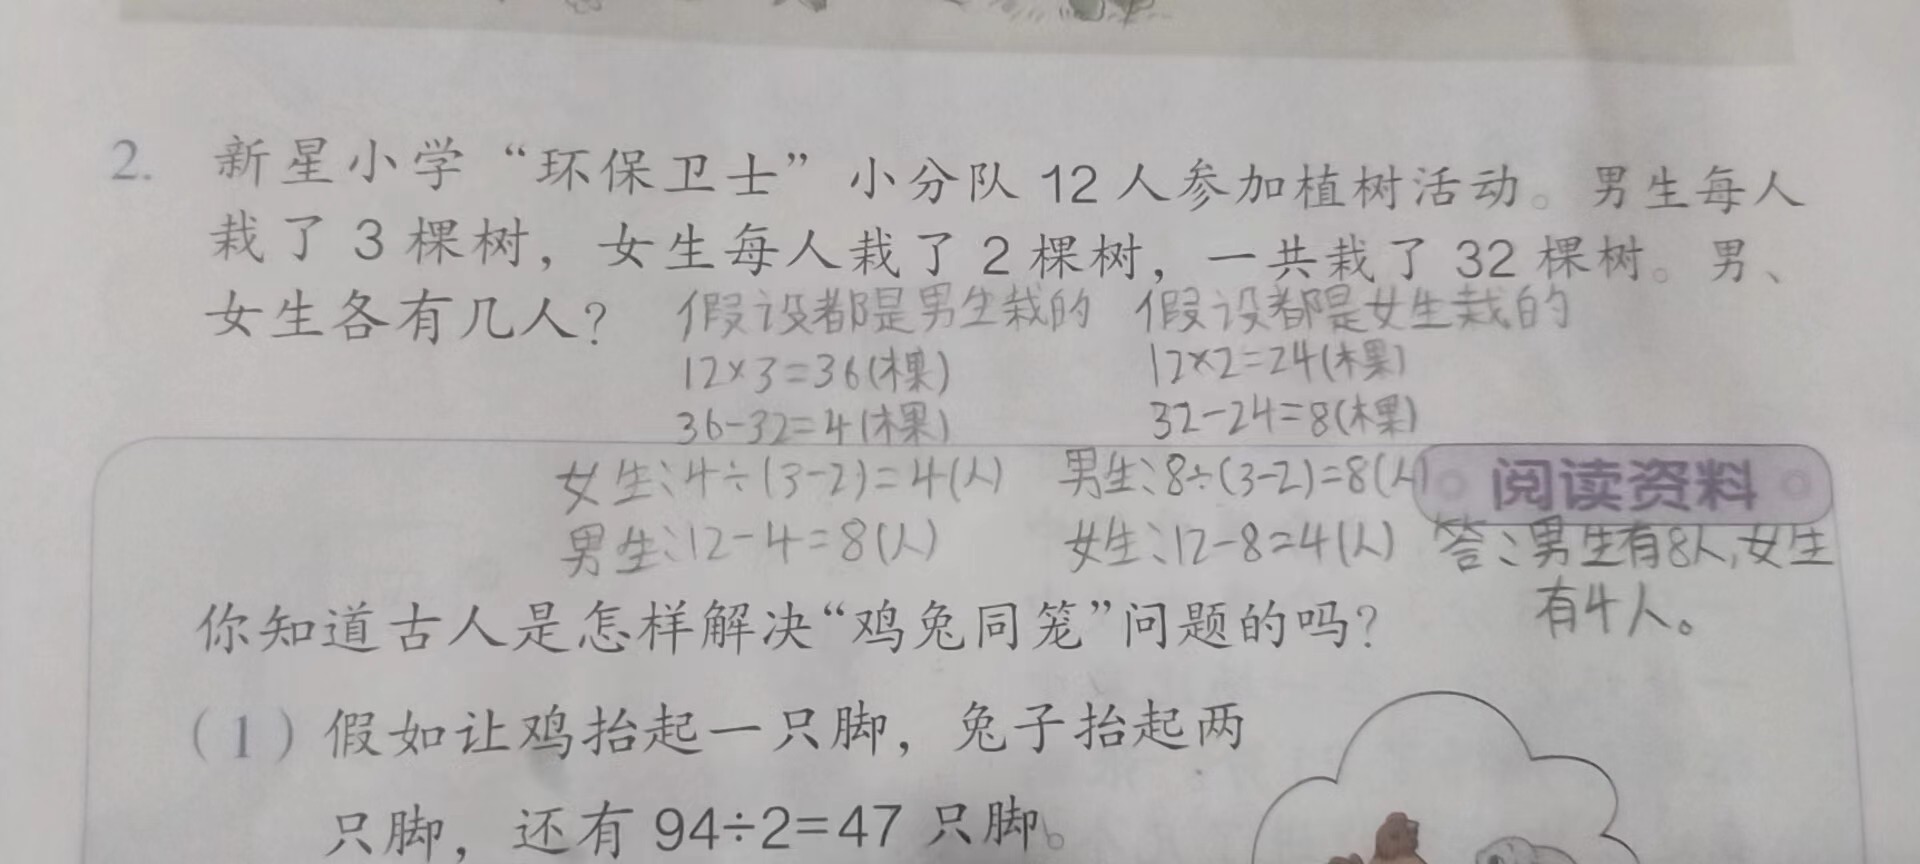 2. 新星小学“环保卫士”小分队 12 人参加植树活动。男生每人
栽了 3 棵树，女生每人栽了 2 棵树，一共栽了 32 棵树。男、
女生各有几人？
假设都是男生栽的
12×3=36(棵)
36-32=4(棵)
女生：4÷(3-2)=4(人)
男生：12-4=8(人)
假设都是女生栽的
12×2=24(棵)
32-24=8(棵)
男生：8÷(3-2)=8(人)
女生：12-8=4(人)
答：男生有8人，女生
有4人。
阅读资料
你知道古人是怎样解决“鸡兔同笼”问题的吗？
（1）假如让鸡抬起一只脚，兔子抬起两
只脚，还有 94÷2=47 只脚。